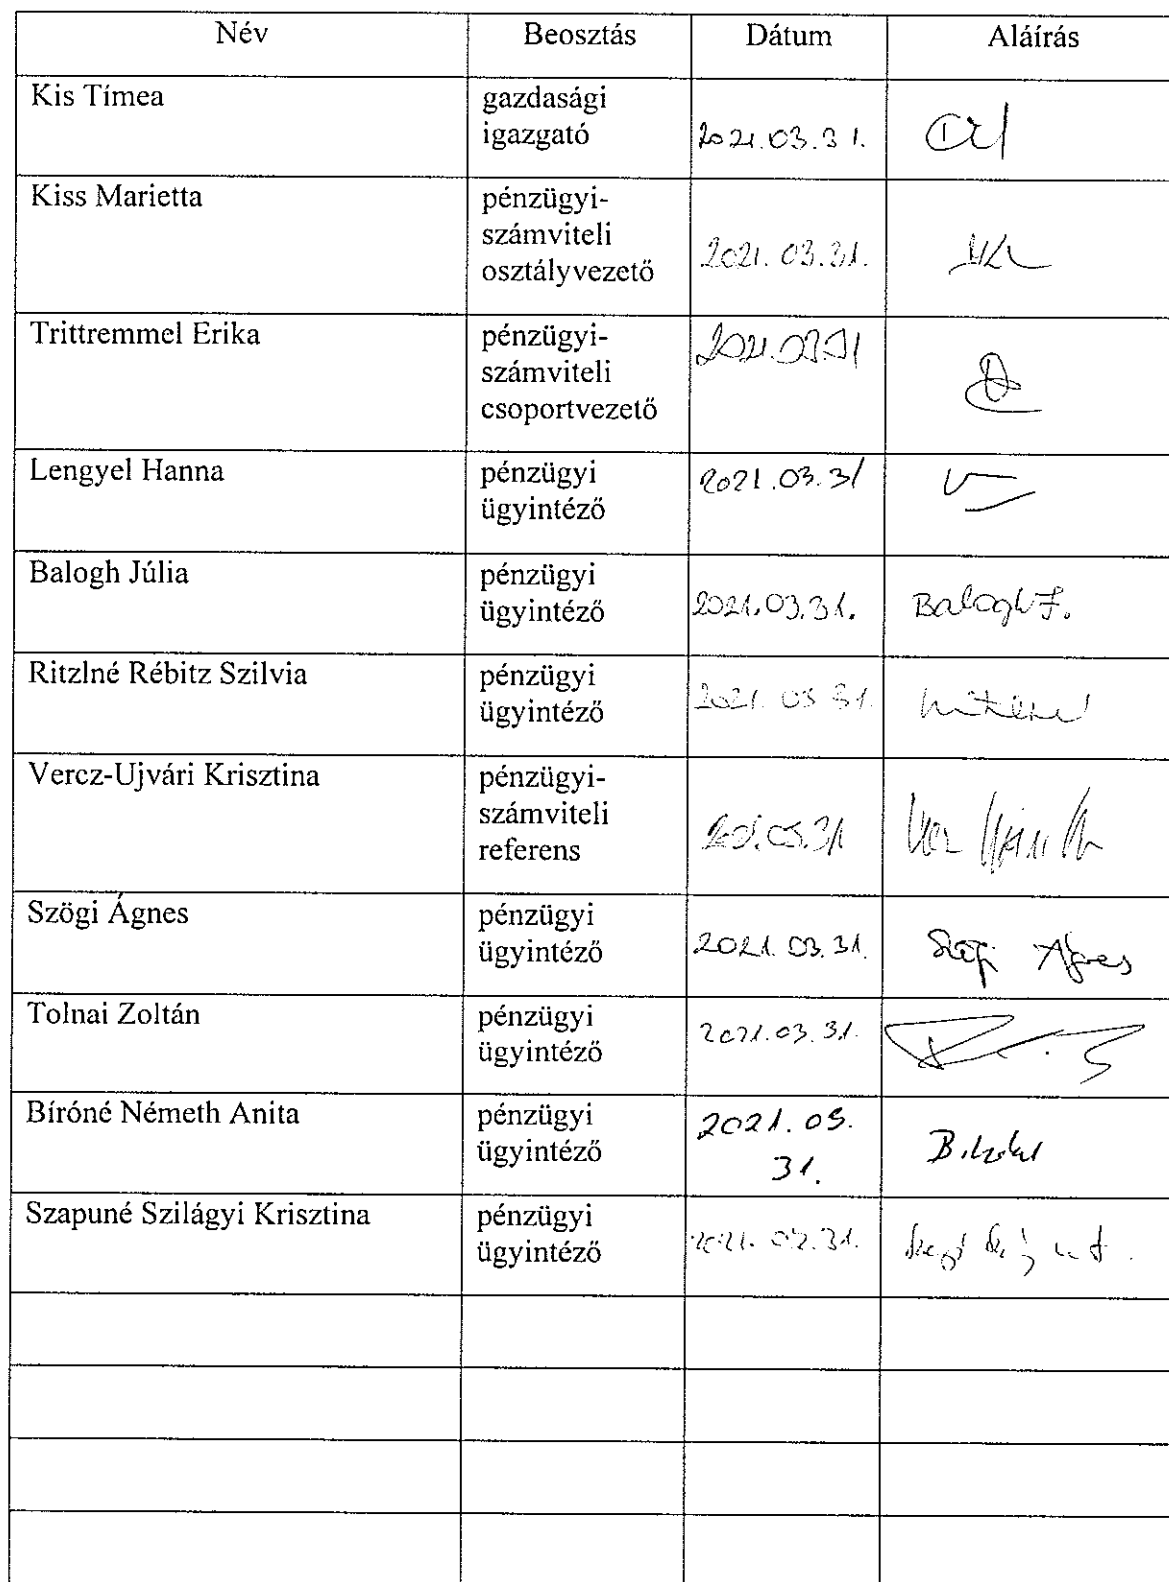 Név Beosztás Dátum Aláírás
Kis Tímea gazdasági
igazgató 2021.03.31.
Kiss Marietta pénzügyi-
számviteli
osztályvezető 2021.03.31.
Trittremmel Erika pénzügyi- 2021.03.31
számviteli
csoportvezető
Lengyel Hanna pénzügyi 2021.03.31
ügyintéző
Balogh Júlia pénzügyi
ügyintéző 2021.03.31. Balogh J.
Ritzlné Rébitz Szilvia pénzügyi
ügyintéző 2021.03.31.
Vercz-Ujvári Krisztina pénzügyi-
számviteli
referens
Szögi Ágnes pénzügyi
ügyintéző 2021.03.31. Szögi Ágnes
Tolnai Zoltán pénzügyi
ügyintéző 2021.03.31.
Bíróné Németh Anita pénzügyi 2021.03.
ügyintéző 31.
Szapuné Szilágyi Krisztina pénzügyi
ügyintéző 2021.03.31.